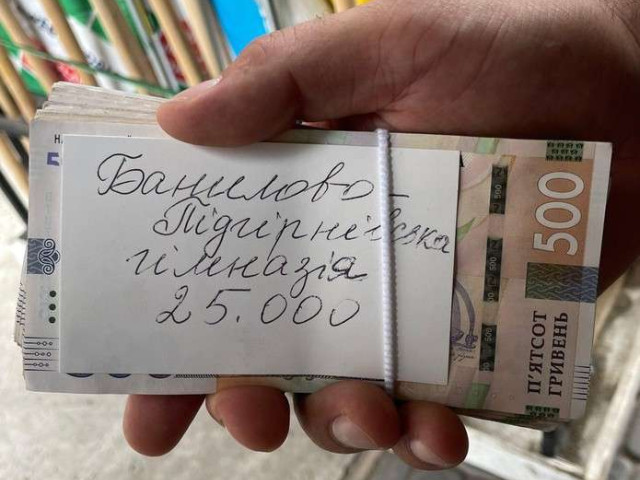 Банилово-
Підгірнівська
гімназія
25.000
500
П'ЯТСОТ
ГРИВЕНЬ